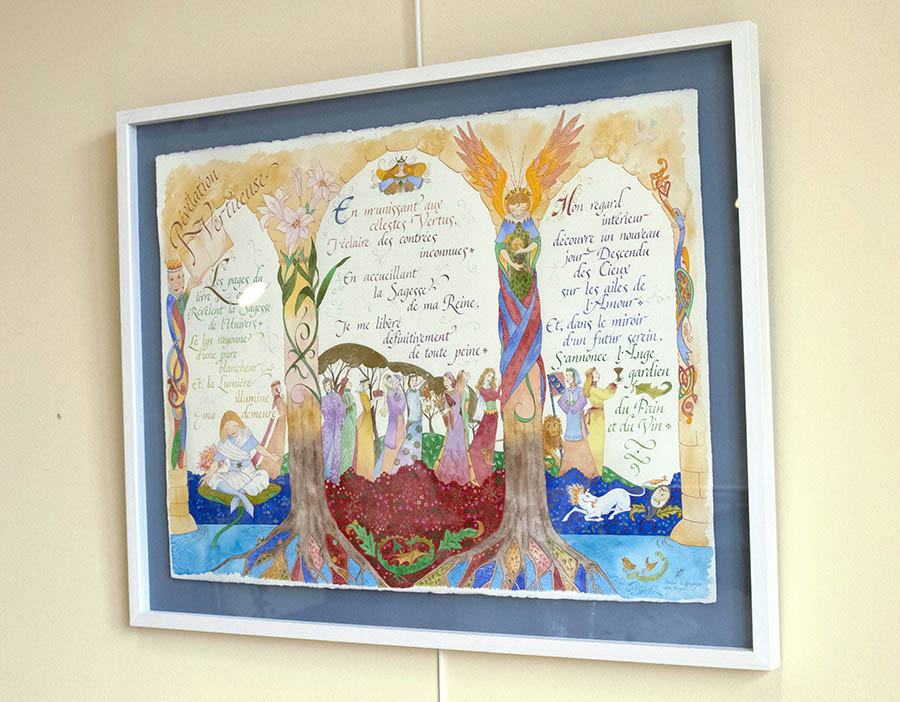 Révélation
Vertueuse.
Les pages du
livre
Révèlent la Sagesse
de l'Univers
Le lys rayonne
d'une pure
blancheur
Et la Lumière
illumine
ma demeure
En m'unissant aux
célestes Vertus,
J'éclaire des contrées
inconnues
En accueillant
la Sagesse
de ma Reine,
Je me libère
définitivement
de toute peine
Mon regard
intérieur
découvre un nouveau
jour Descendu
des Cieux
sur les ailes de
l'Amour
Et, dans le miroir
d'un futur serein,
S'annonce l'Ange
gardien
du Pain
et du Vin